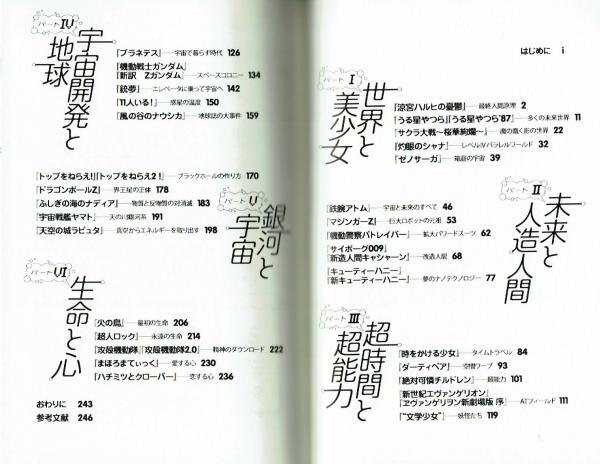 はじめに i
パート I
世界と
美少女
『涼宮ハルヒの憂鬱』——最終人間原理 2
『うる星やつら』『うる星やつら'87』——多くの未来世界 11
『サクラ大戦〜桜華絢爛〜』——魔の蠢く影の世界 22
『灼眼のシャナ』——レベルⅣパラレルワールド 32
『ゼノサーガ』——箱庭の宇宙 39
パート II
未来と
人造人間
『鉄腕アトム』——宇宙と未来のすべて 46
『マジンガーZ』——巨大ロボットの元祖 53
『機動警察パトレイバー』——拡大パワードスーツ 62
『サイボーグ009』
『新造人間キャシャーン』——改造人間 68
『キューティーハニー』
『新キューティーハニー』——夢のナノテクノロジー 77
パート III
超時間と
超能力
『時をかける少女』——タイムトラベル 84
『ダーティペア』——空間ワープ 93
『絶対可憐チルドレン』——超能力 101
『新世紀エヴァンゲリオン』
『ヱヴァンゲリヲン新劇場版 序』——ATフィールド 111
『"文学少女"』——妖怪たち 119
パート IV
宇宙開発と
地球
『プラネテス』——宇宙で暮らす時代 126
『機動戦士ガンダム』
『新訳 Zガンダム』——スペースコロニー 134
『銃夢』——エレベータに乗って宇宙へ 142
『11人いる!』——惑星の温度 150
『風の谷のナウシカ』——地球誌の大事件 159
パート V
銀河と
宇宙
『トップをねらえ!』『トップをねらえ2!』——ブラックホールの作り方 170
『ドラゴンボールZ』——界王星の正体 178
『ふしぎの海のナディア』——物質と反物質の対消滅 183
『宇宙戦艦ヤマト』——天の川銀河系 191
『天空の城ラピュタ』——真空からエネルギーを取り出す 198
パート VI
生命と心
『火の鳥』——最初の生命 206
『超人ロック』——永遠の生命 214
『攻殻機動隊』『攻殻機動隊2.0』——精神のダウンロード 222
『まほろまてぃっく』——愛する心 230
『ハチミツとクローバー』——恋する心 236
おわりに 243
参考文献 246